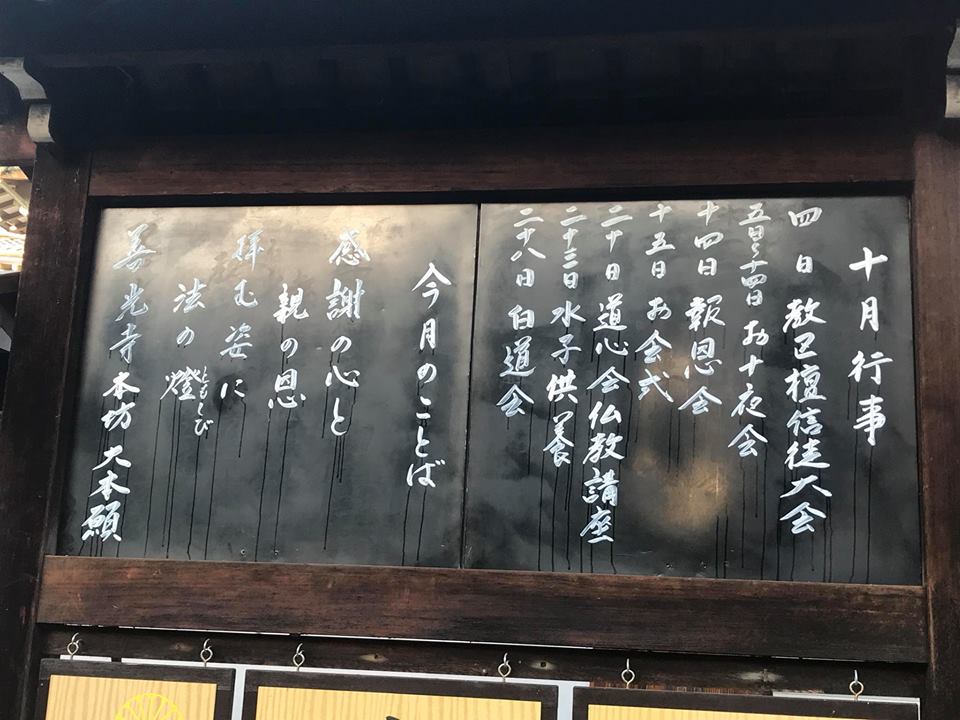 十月行事
四日 教区檀信徒大会
五日〜十四日 お十夜会
十四日 報恩会
十五日 お会式
二十日 道心会仏教講座
二十三日 水子供養
二十八日 白道会
今月のことば
感謝の心と
親の恩
拝む姿に
法の燈
ともしび
善光寺本坊 大本願